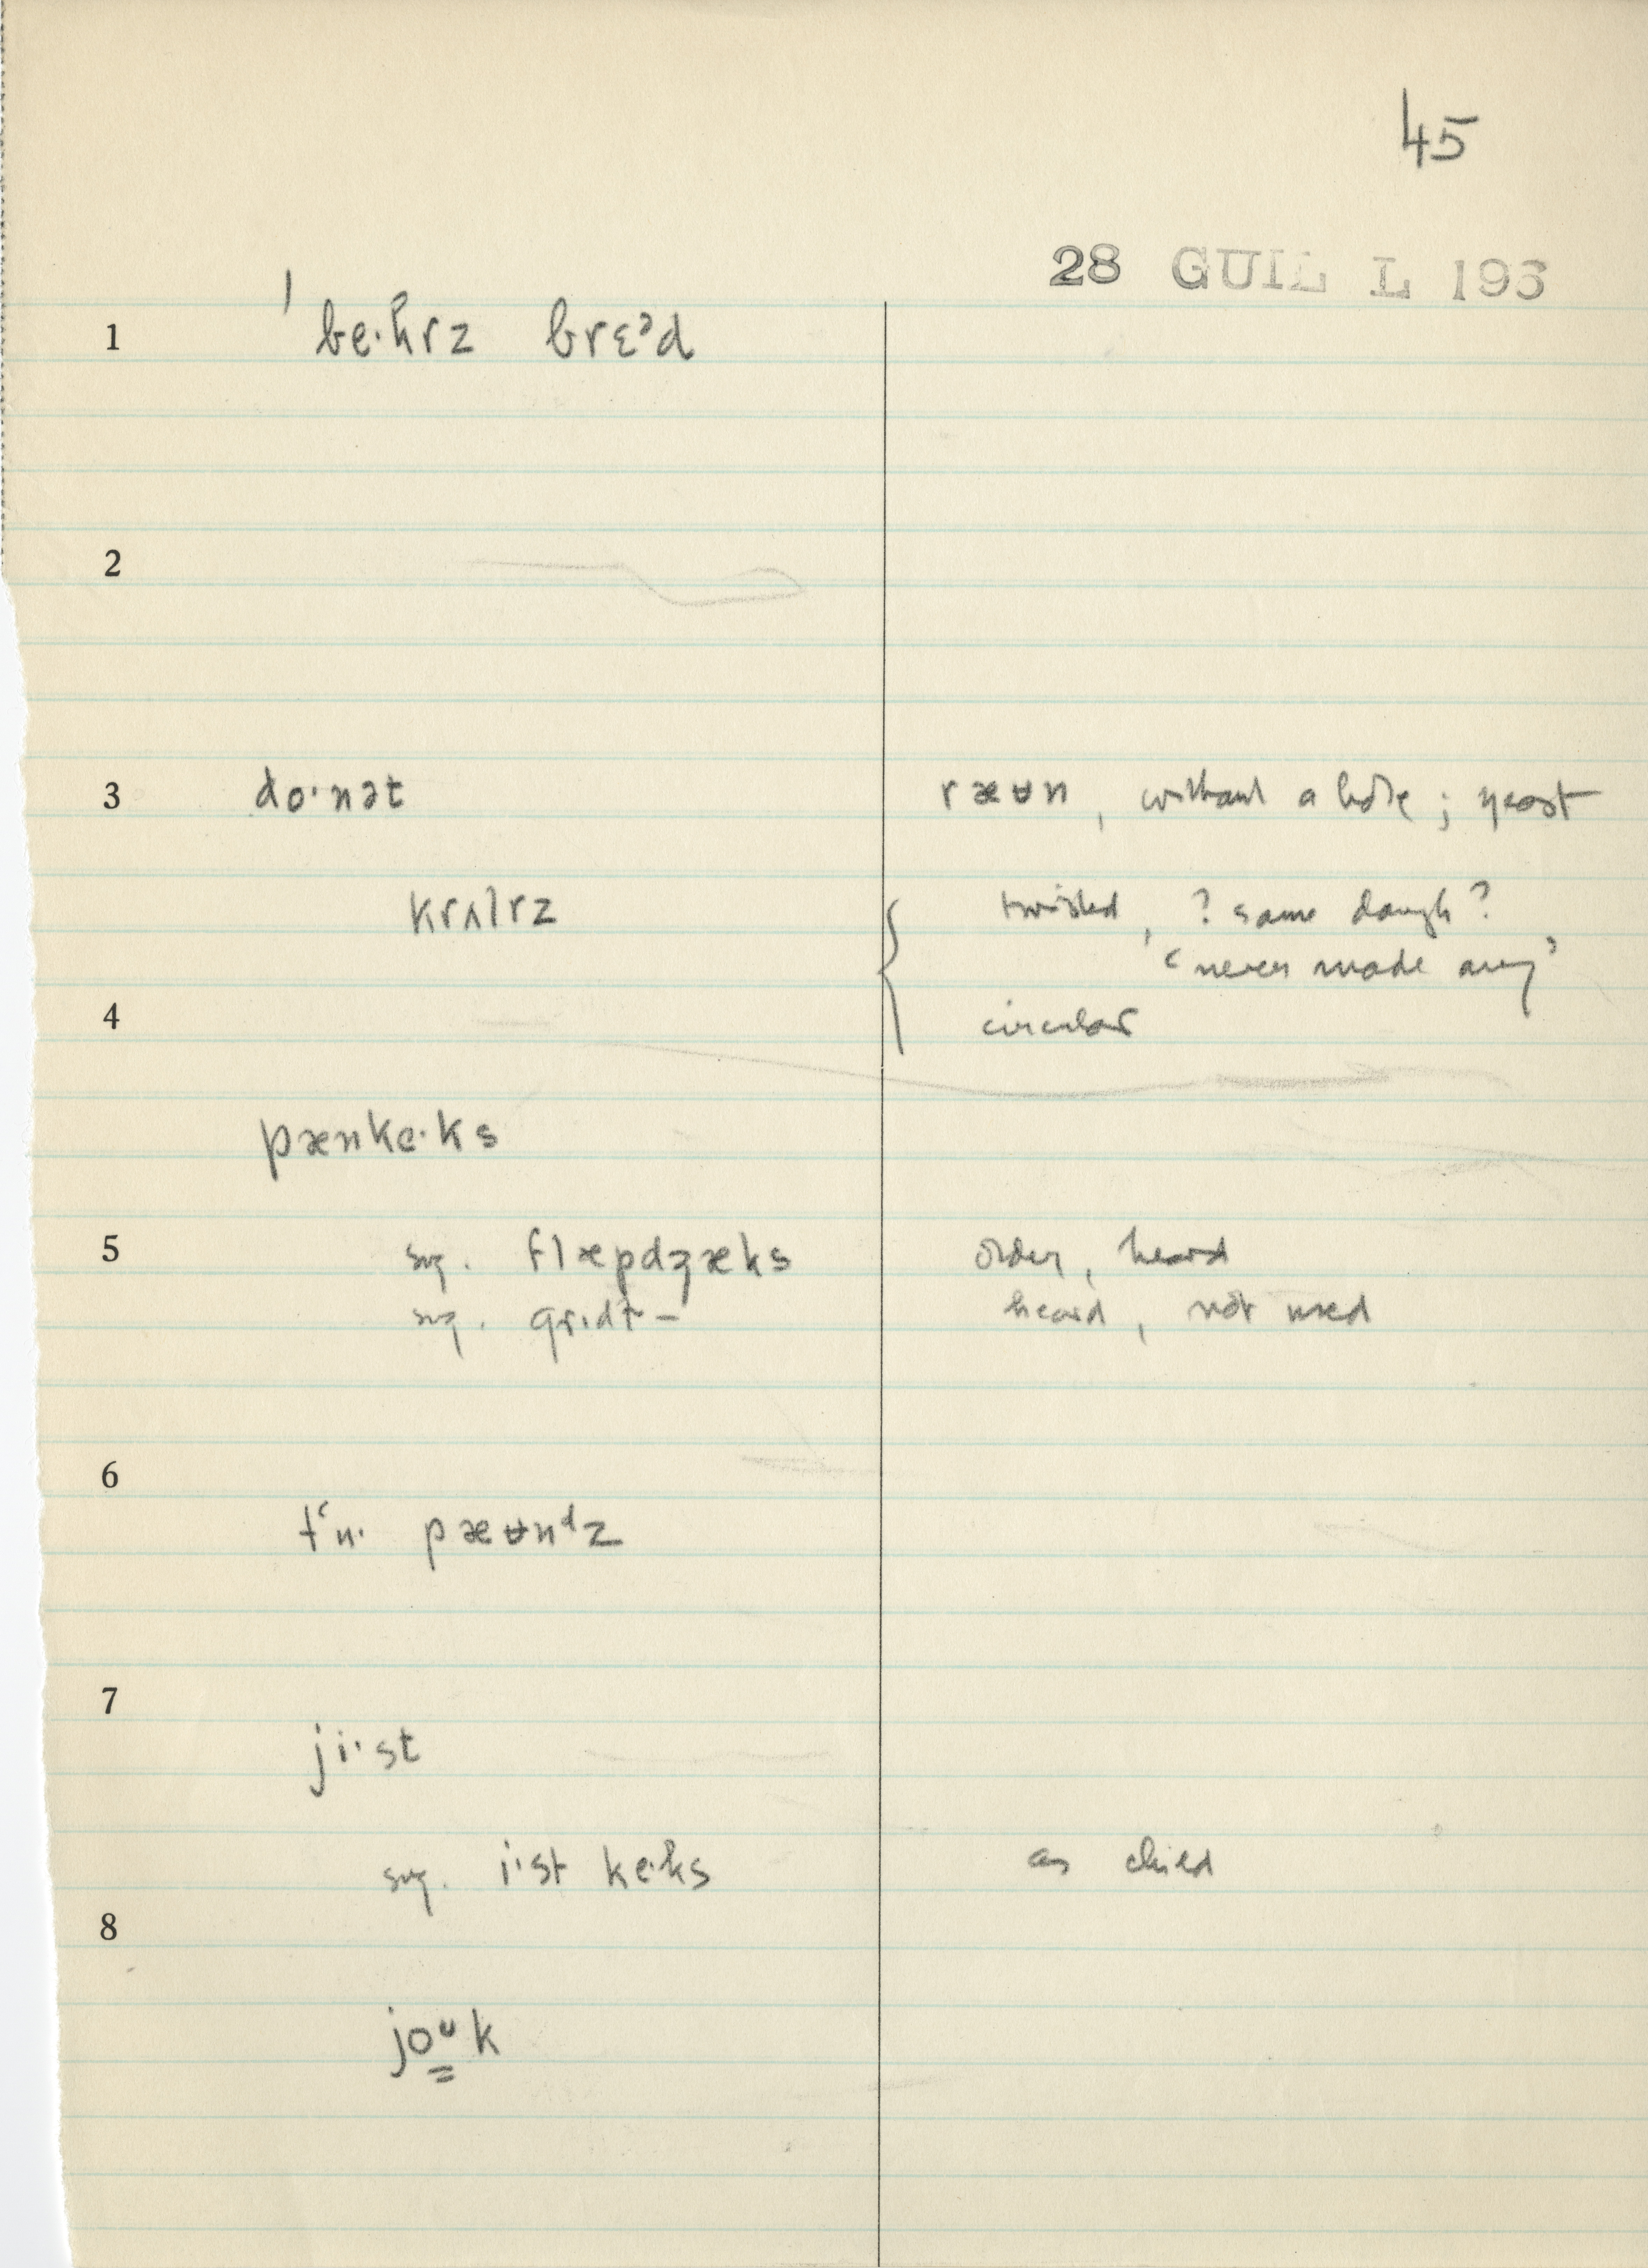 45
28 GUIL L 193
1 ˈbe·kɾz brɛᵊd
2
3 do·nət ræʉn, without a hole; yeast
krʌlɾz { twisted, ? same dough?
‘never made any’
4 circular
pænke·ks
5 sug. flæpdʒæks older, heard
sug. grɪdɫ- heard, not used
6
pæʉnᵈz
7
ji·st
sug. i·st ke·ks as child
8
joᵘk